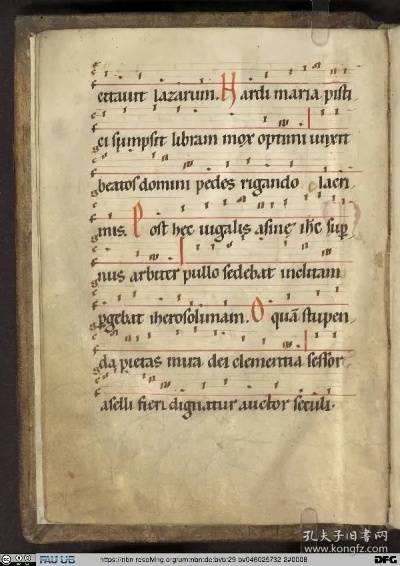 citauit lazarum. Nardi maria pisti
ci sumpsit libram mox optimi unxit
beatos domini pedes rigando lacri
mis. Post hec iugalis asine ihc sup̄
nus arbiter pullo sedebat inclitam
pgebat iherosolimam. O quā stupen
da pietas mira dei clementia sessor
aselli fieri dignatur auctor seculi.
孔夫子旧书网
https://nbn-resolving.org/urn:nbn:de:bvb:29-bv046029732-2#0008
FAU UB
DFG